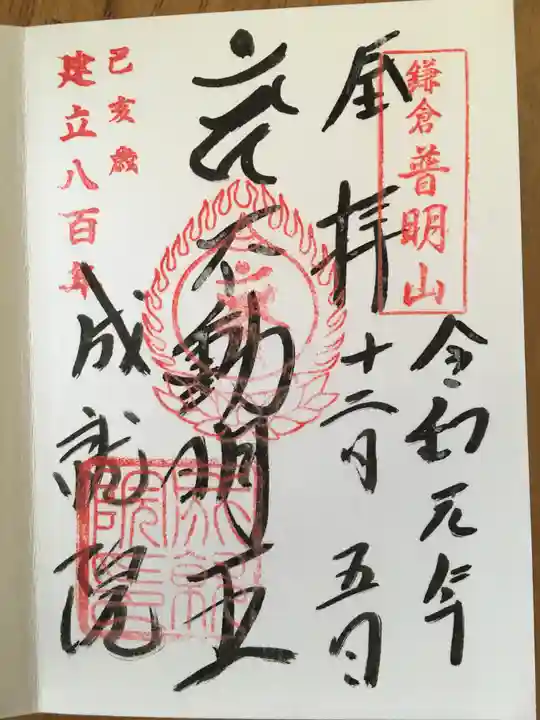 鎌倉普明山
令和元年
奉拝 十二月 五日
不動明王
成就院
己亥歳
建立八百年